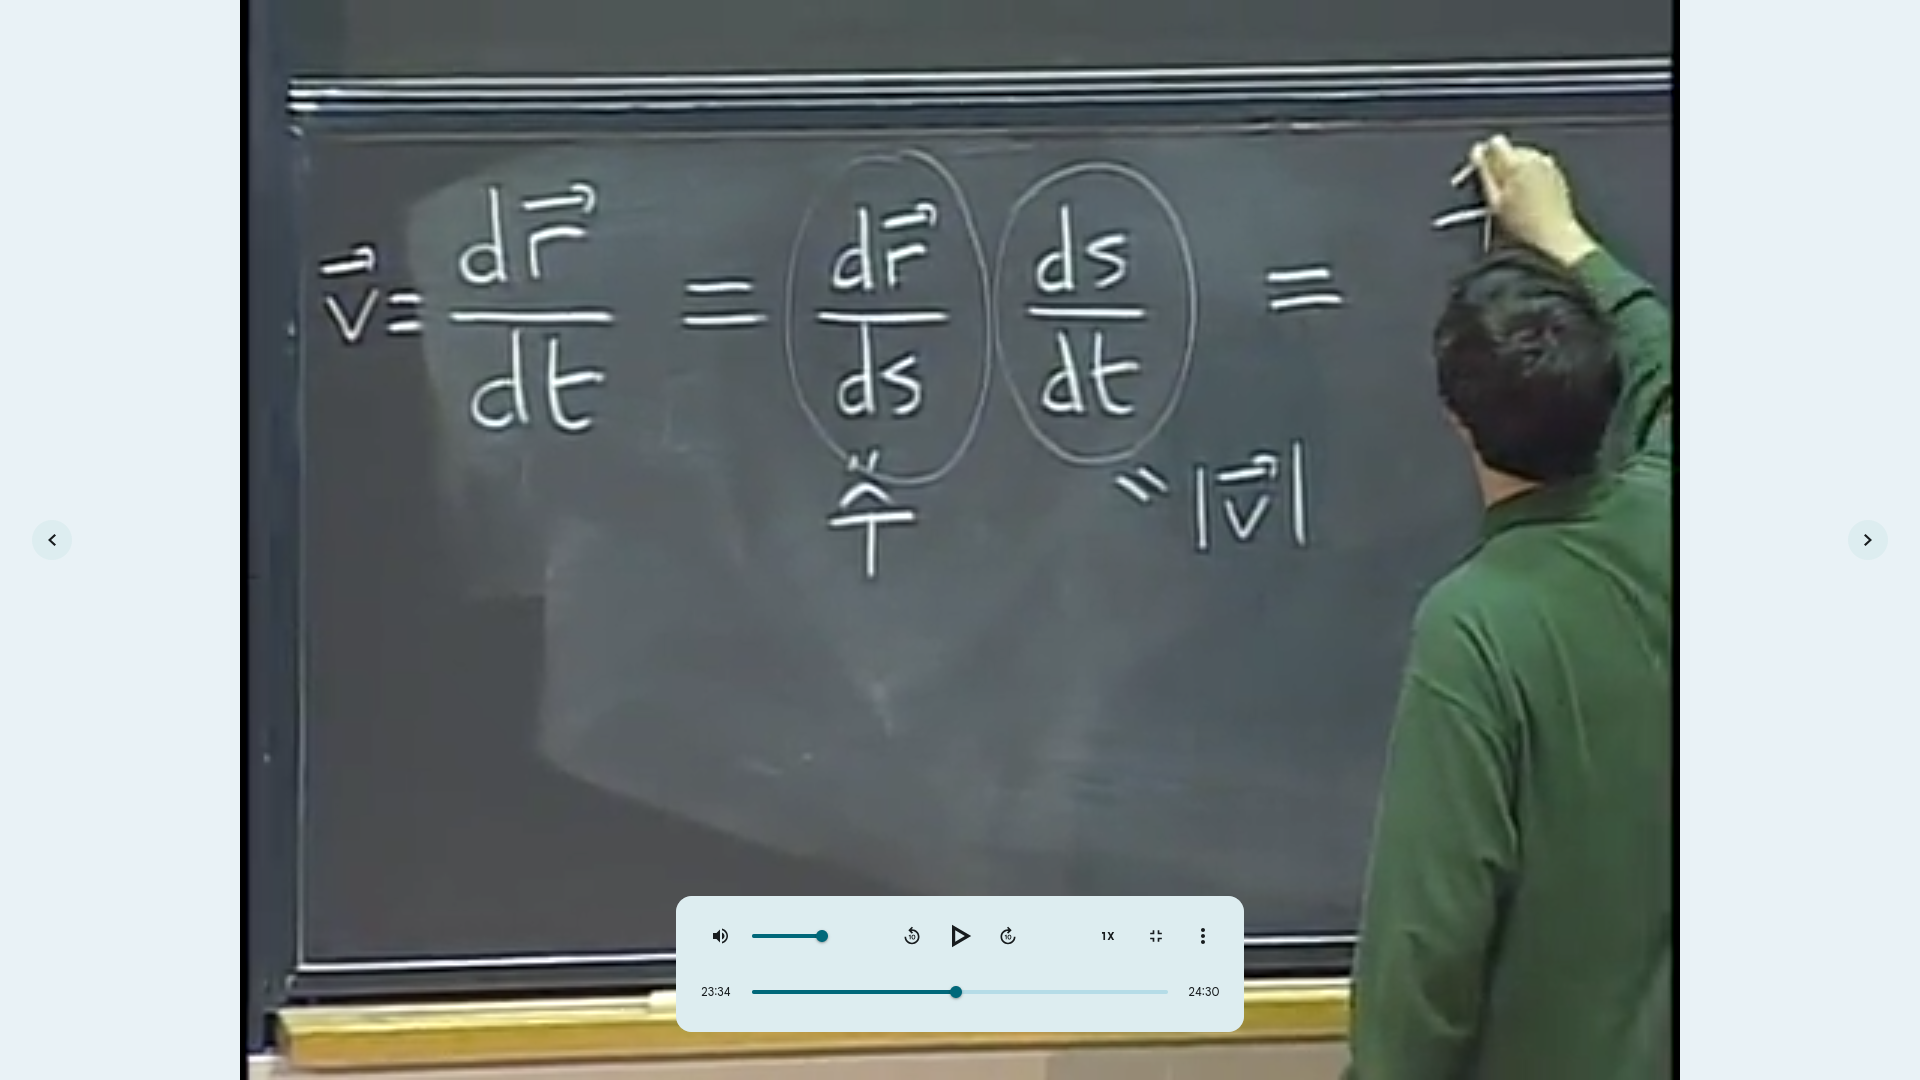 v⃗ = dr⃗/dt = dr⃗/ds ds/dt = T̂
" T̂ " |v⃗|
1X
23:34 24:30